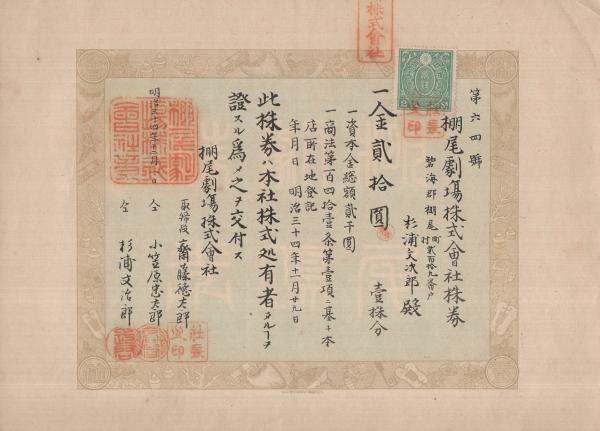 第六四號
棚尾劇場株式會社株券
碧海郡棚尾町村貳百拾九番戸
杉浦文次郎殿
一金貳拾圓
壹株分
一資本金総額貳千圓
一商法第百四拾壹条第壹項ニ基キ本
店所在地登記
年月日 明治三十四年十一月廿九日
此株券ハ本社株式処有者タルヿヲ
證スル為メ之ヲ交付ス
棚尾劇場株式會社
明治三十四年十二月 日
取締役 齋藤德太郎
仝 小笠原忠太郎
仝 杉浦文治郎
株式會社